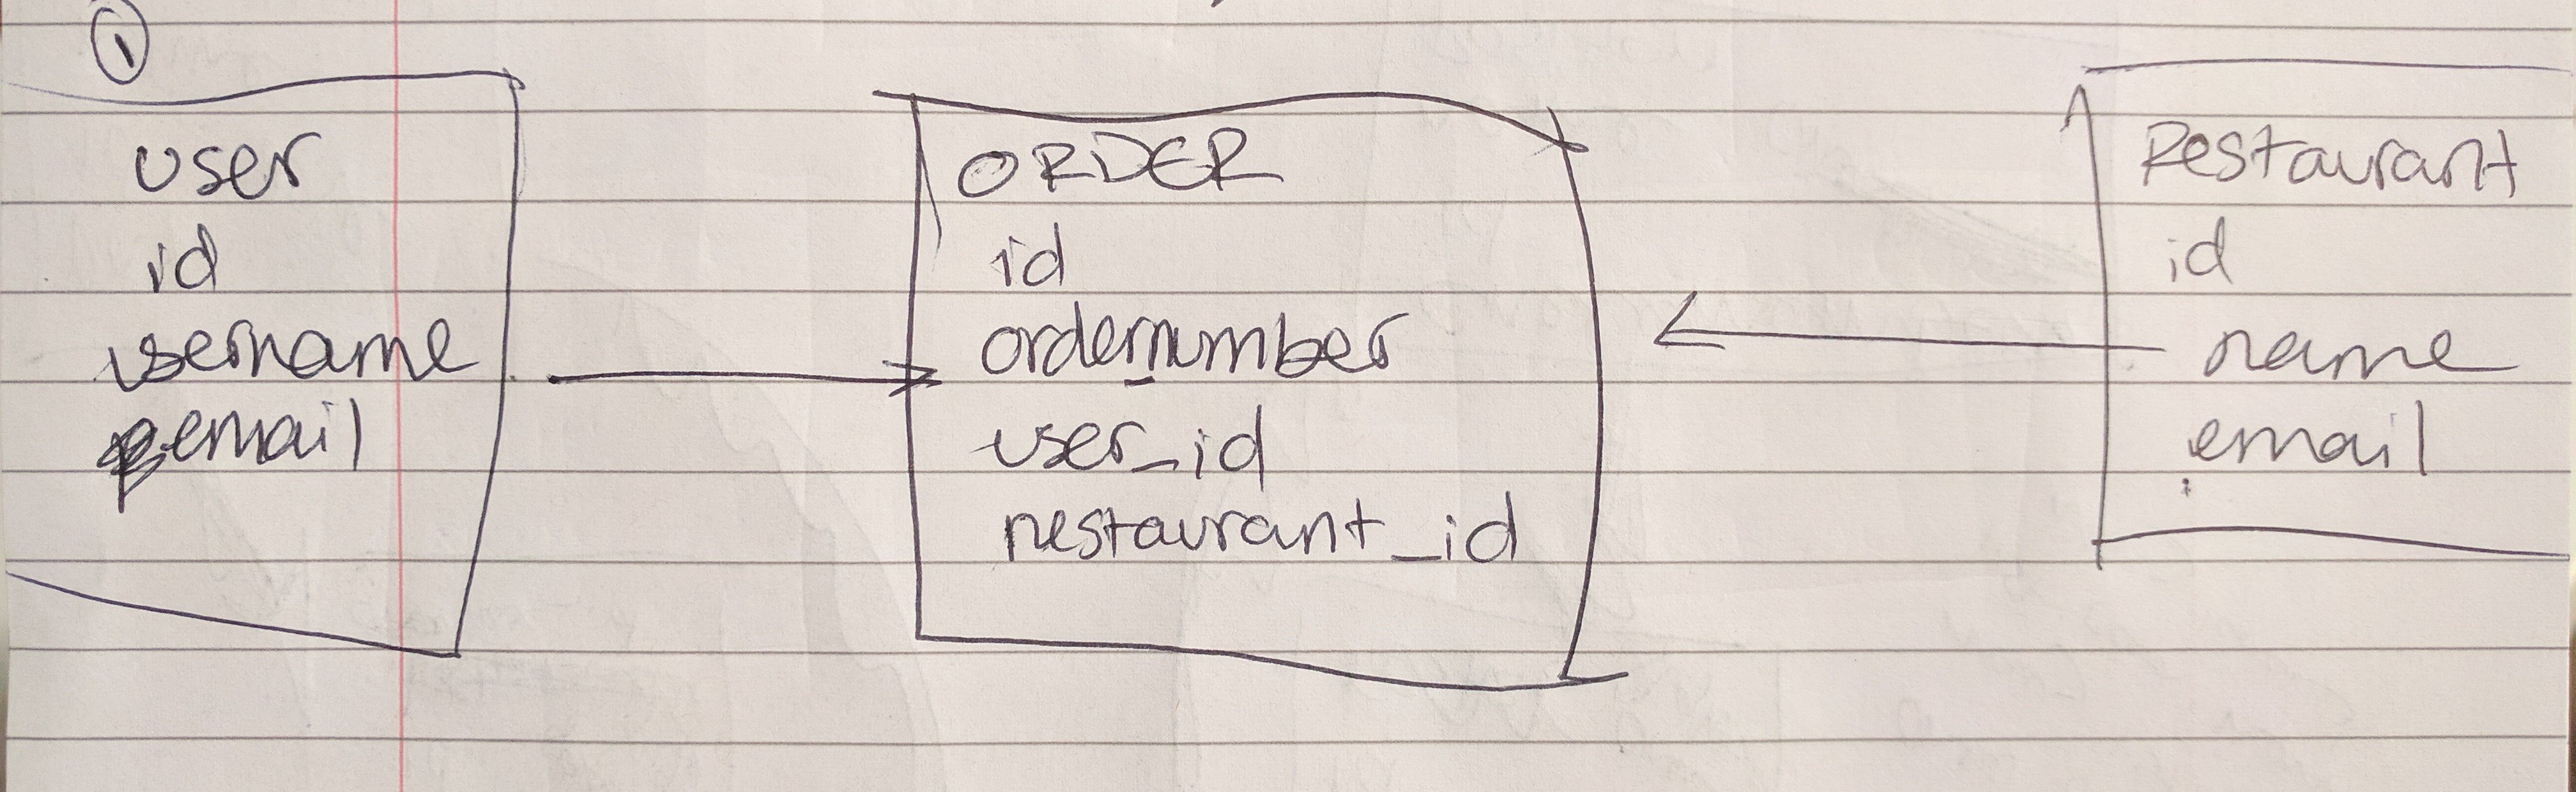 1
user
id
username
email
ORDER
id
ordernumber
user_id
restaurant_id
Restaurant
id
name
email